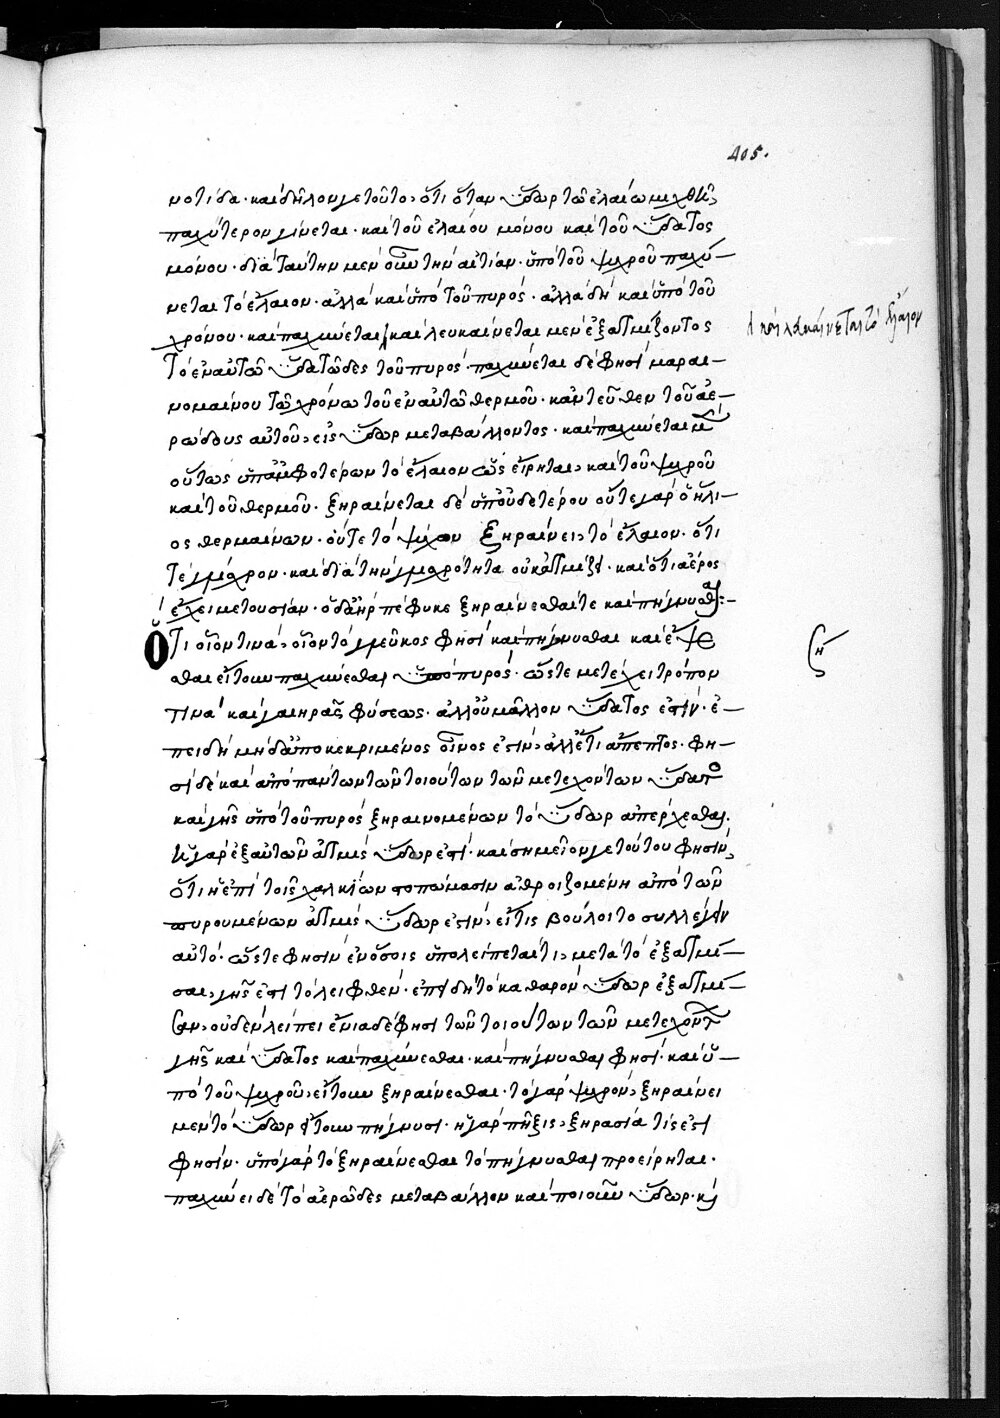 405.
νοτίδα· καὶ δῆλον γε τοῦτο, ὅτι ὅταν ὕδωρ τῷ ἐλαίῳ μιχθῇ,
παχύτερον γίνεται· καὶ τοῦ ἐλαίου μόνου καὶ τοῦ ὕδατος
μόνου· διὰ ταύτην μὲν οὖν τὴν αἰτίαν· ὑπὸ τοῦ ψυχροῦ παχύ-
νεται τὸ ἔλαιον· ἀλλὰ καὶ ὑπὸ τοῦ πυρός· ἀλλὰ δὴ καὶ ὑπὸ τοῦ
χρόνου· καὶ παχύνεται καὶ λευκαίνεται μὲν ἐξατμίζοντος
τὸ ἐν αὐτῷ ὑδατῶδες τοῦ πυρός· παχύνεται δὲ φησὶ μαραι-
νομαίνου τῷ χρόνῳ τοῦ ἐν αὐτῷ θερμοῦ· κἀντεῦθεν τοῦ ἀε-
ρώδους αὐτοῦ, εἰς ὕδωρ μεταβάλλοντος· καὶ παχύνεται μὲν
οὕτως ὑπ' ἀμφοτέρων τὸ ἔλαιον ὡς εἴρηται, καὶ τοῦ ψυχροῦ
καὶ τοῦ θερμοῦ· ξηραίνεται δὲ ὑπ' οὐδετέρου οὔτε γὰρ ὁ ἥλι-
ος θερμαίνων· οὔτε τὸ ψύχον ξηραίνει, τὸ ἔλαιον· ὅτι
τὲ γλίσχρον· καὶ διὰ τὴν γλισχρότητα οὐκ ἀτμίζει· καὶ ὅτι ἀέρος
ἔχει μετουσίαν· ὁ δ' ἀὴρ πέφυκε ξηραίνεσθαί τε καὶ πήγνυσθαι:-
Ὅτι οἷόν τινα, οἷον τὸ γλεῦκος φησὶ καὶ πήγνυσθαι καὶ ἕψε
σθαι εἴτουν παχύνεσθαι ὑπὸ πυρός· ὥστε μετέχει τρόπον
τινὰ καὶ γαιηρᾶς φύσεως· ἀλλ' οὐ μᾶλλον ὕδατος ἐστίν· ἐ-
πειδὴ μηδ' ἀποκεκριμένος οἶνος ἐστίν, ἀλλ' ἔτι ἄπεπτος· φη-
σὶ δὲ καὶ ἀπὸ πάντων τῶν τοιούτων τῶν μετεχόντων ὕδατος
καὶ γῆς ὑπὸ τοῦ πυρὸς ξηραινομένων τὸ ὕδωρ ἀπέρχεσθαι·
ἡ γὰρ ἐξ αὐτῶν ἀτμὶς ὕδωρ ἐστί· καὶ σημεῖον γε τούτου φησίν,
ὅτι ἡ ἐπὶ τοῖς χαλκίων ποπώμασιν ἀθροιζομένη ἀπὸ τῶν
πυρουμένων ἀτμὶς ὕδωρ ἐστίν, εἴ τις βούλοιτο συλλέγειν
αὐτό· ὥστε φησὶν ἐν ὅσοις ὑπολείπεταί τι, μετὰ τὸ ἐξατμί-
σαι, γῆς ἐστὶ τὸ λειφθέν· ἐπειδὴ τὸ καθαρὸν ὕδωρ ἐξατμί-
σαν, οὐδὲν λείπει ἔνια δὲ φησὶ τῶν τοιούτων τῶν μετεχόντων
γῆς καὶ ὕδατος καὶ παχύνεσθαι· καὶ πήγνυσθαι φησὶ· καὶ ὑ-
πὸ τοῦ ψυχροῦ, εἴτουν ξηραίνεσθαι· τὸ γὰρ ψυχρὸν, ξηραίνει
μὲν τὸ ὕδωρ εἴτουν πήγνυσι· ἡ γὰρ πῆξις, ξηρασία τίς ἐστὶ
φησίν· ὑπὸ γὰρ τὸ ξηραίνεσθαι τὸ πήγνυσθαι προείρηται·
παχύνει δὲ τὸ ἀερῶδες μεταβάλλον καὶ ποιοῦν ὕδωρ· καὶ